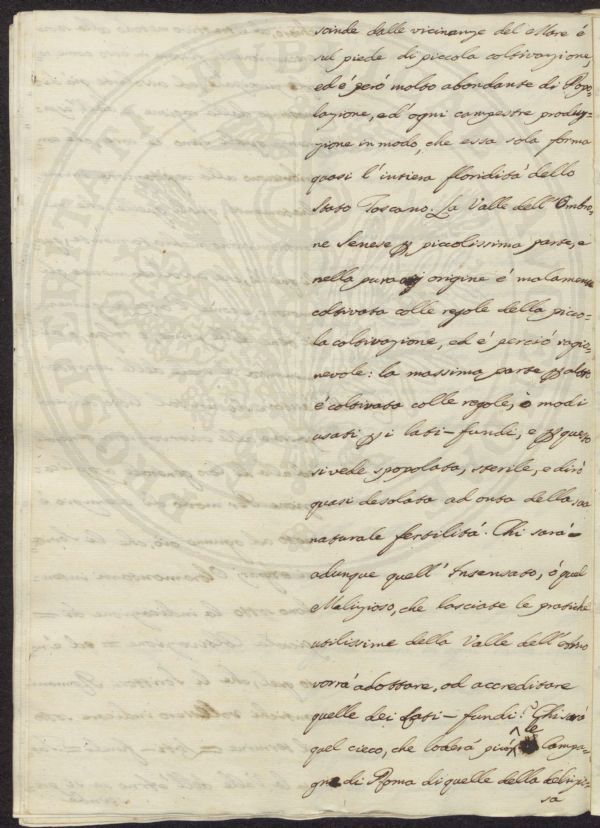 scinde dalle vicinanze del Mare é
sul piede di piccola coltivazione,
ed é peró molto abondante di Popo-
lazione, ed' ogni campestre produ-
zione in modo, che essa sola forma
quasi l' intiera floridità dello
Stato Toscano. La Valle dell' Ombro,
ne Senese p piccolissima parte, e
nella pura origine é malamente
coltivata colle regole della picco-
la coltivazione, ed é perció ragio-
nevole: la massima parte p altro
é coltivata colle regole, o modi
usati p i lati-fundi, e p questo
si vede spopolata, sterile, e diró
quasi desolata ad onta della sua
naturale fertilitá. Chi sará
adunque quell' Insensato, ó quel
Malizioso, che lasciate le pratiche
utilissime della Valle dell'
vorrá adottare, od accreditare
quelle dei Lati-fundi? Chi sará
quel cieco, che loderá piú le Campa-
gne di Roma di quelle della deliziosa